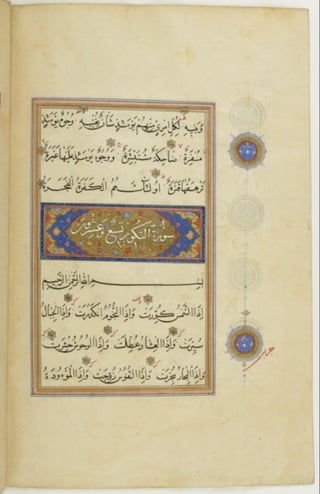 وَبَنِيهِ لِكُلِّ امْرِئٍ مِنْهُمْ يَوْمَئِذٍ شَأْنٌ يُغْنِيهِ وُجُوهٌ يَوْمَئِذٍ
مُسْفِرَةٌ ضَاحِكَةٌ مُسْتَبْشِرَةٌ وَوُجُوهٌ يَوْمَئِذٍ عَلَيْهَا غَبَرَةٌ
تَرْهَقُهَا قَتَرَةٌ اُولٰئِكَ هُمُ الْكَفَرَةُ الْفَجَرَةُ
سورة التكوير تسع وعشرون
بِسْمِ اللّٰهِ الرَّحْمٰنِ الرَّحِيمِ
اِذَا الشَّمْسُ كُوِّرَتْ وَاِذَا النُّجُومُ انْكَدَرَتْ وَاِذَا الْجِبَالُ
سُيِّرَتْ وَاِذَا الْعِشَارُ عُطِّلَتْ وَاِذَا الْوُحُوشُ حُشِرَتْ
وَاِذَا الْبِحَارُ سُجِّرَتْ وَاِذَا النُّفُوسُ زُوِّجَتْ وَاِذَا الْمَوْءُودَةُ